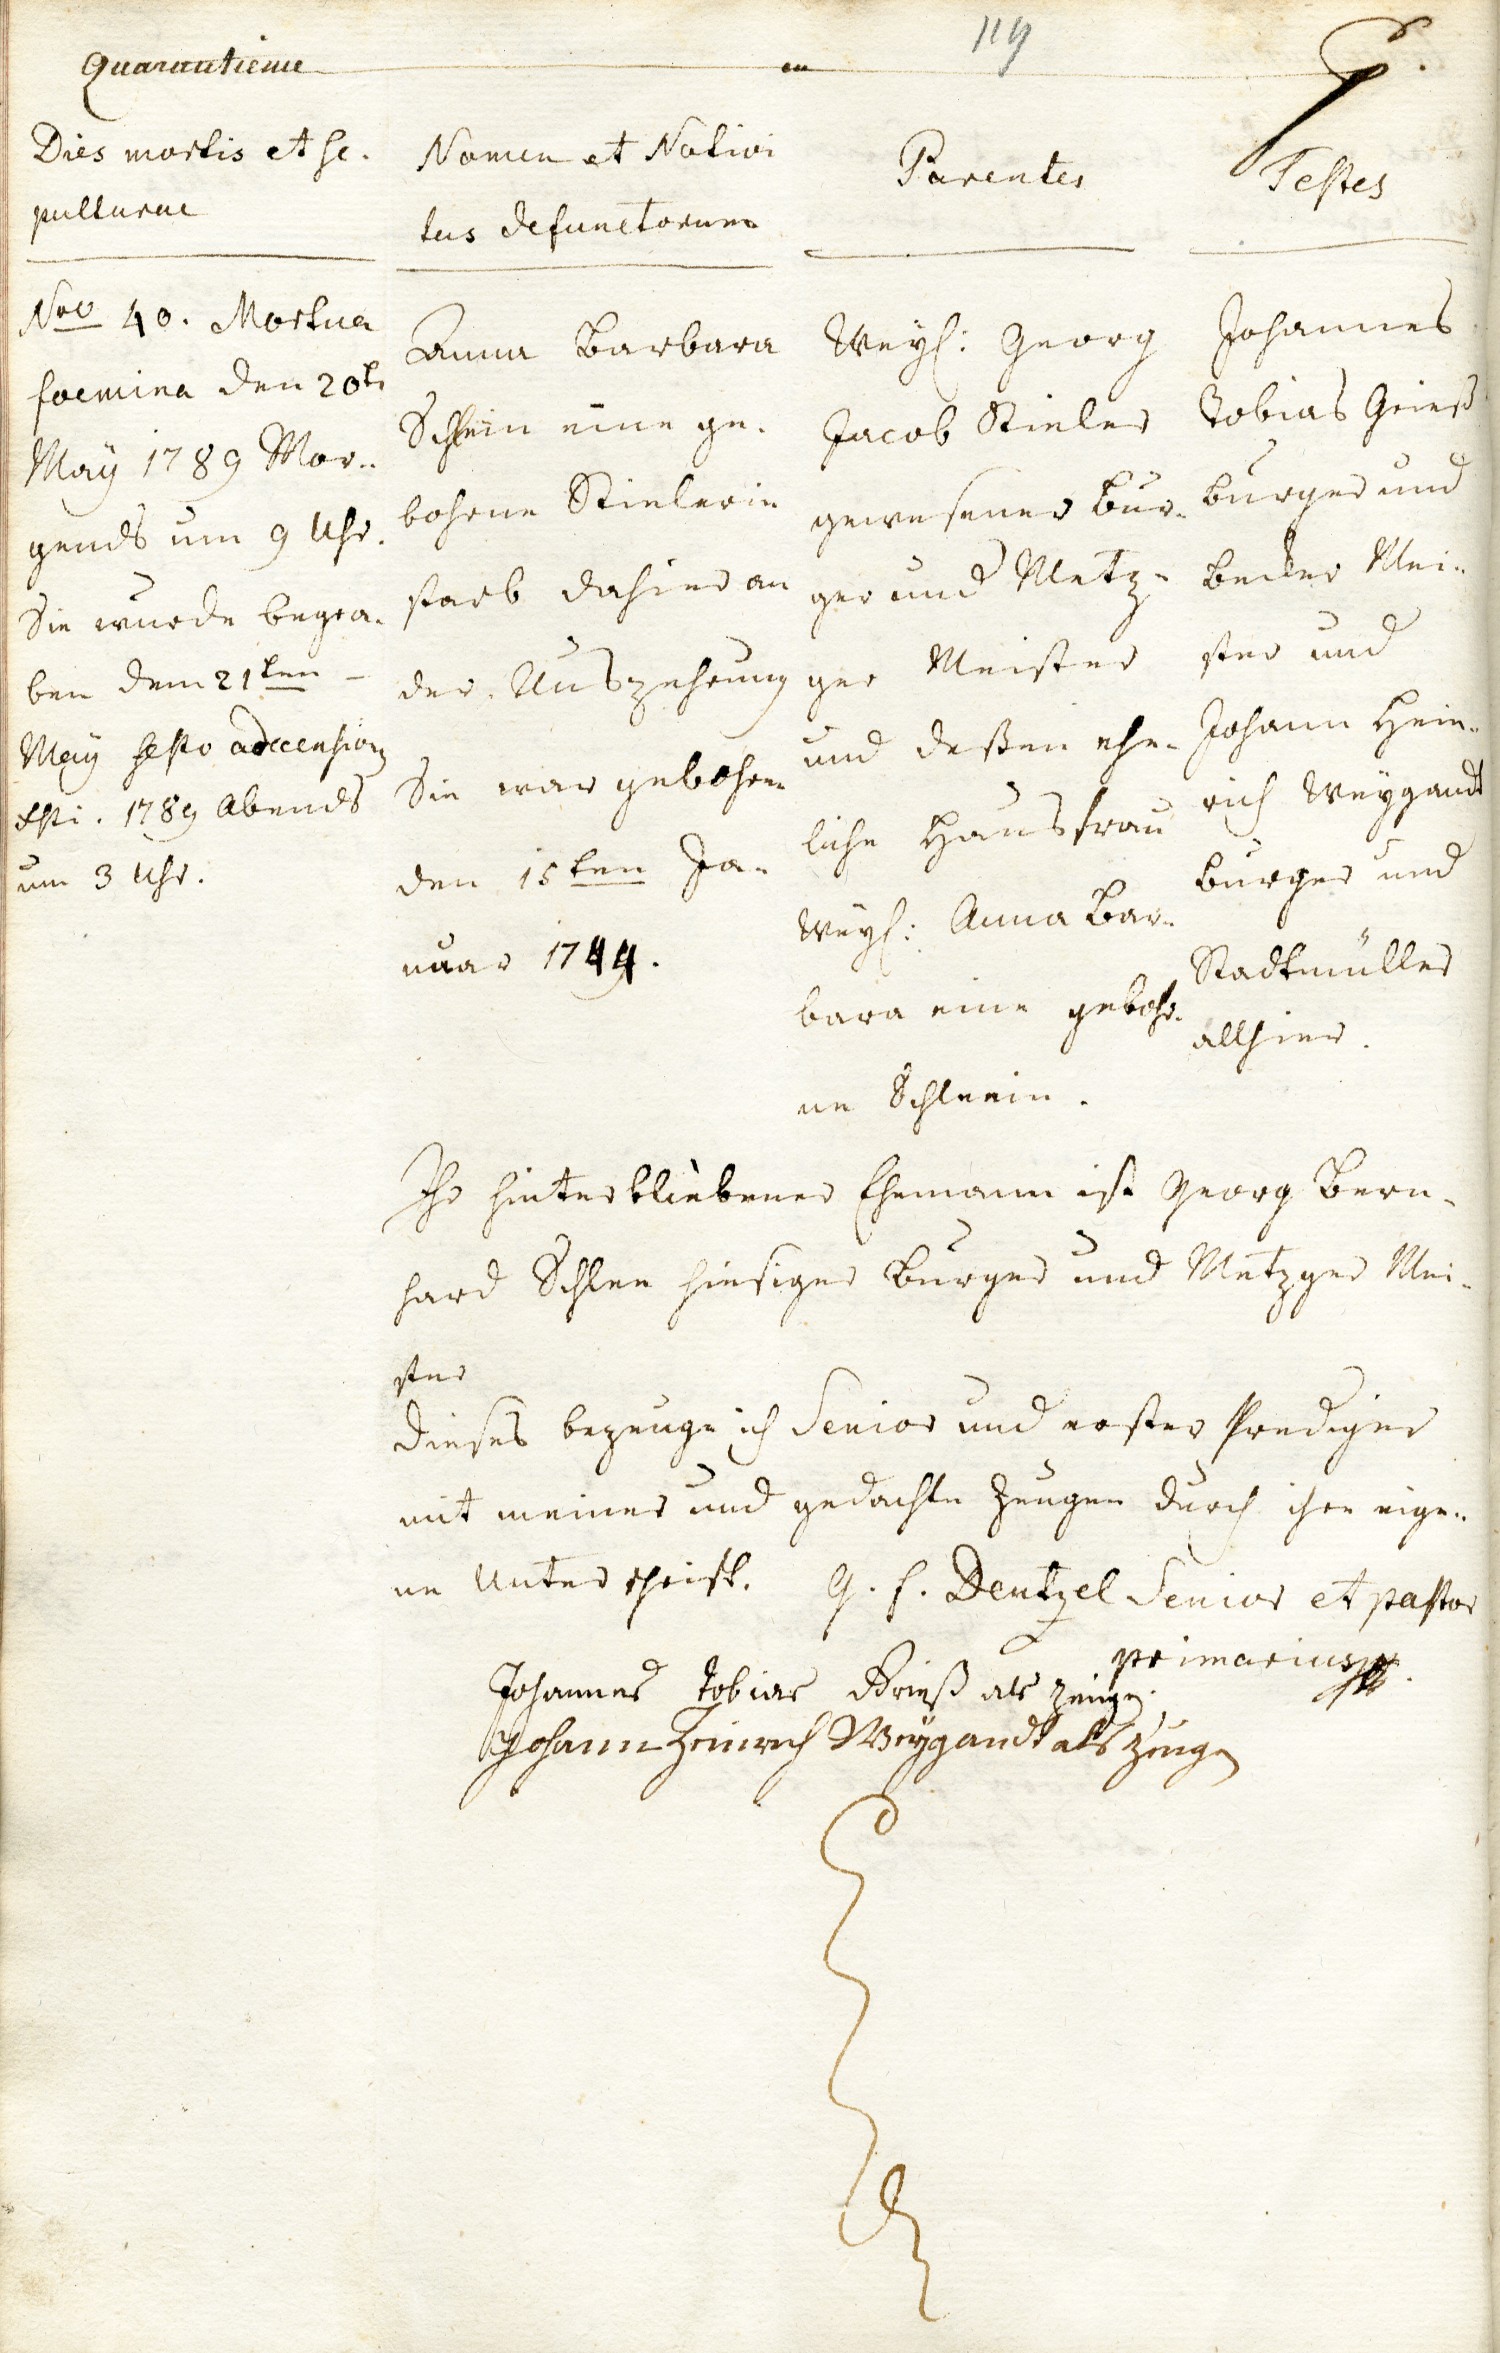 119
Quarantieme en
Dies mortis et se-
pulturae
Nomen et Nativi
tas defunctorum
Parentes
Testes
Nro 40. Mortua
foemina den 20t.
May 1789 Mor-
gends um 9 Uhr.
Sie wurde begra-
ben dem 21ten -
May festo adscension
Xsti. 1789 Abends
um 3 Uhr.
Anna Barbara
Schlein eine ge-
bohrne Stielerin
starb dahier an
der Auszehrung
Sie war gebohren
den 15ten Ja-
nuar 1744.
Weyl: Georg
Jacob Stieler
gewesener Bur-
ger und Metz-
ger Meister
und deßen ehe-
liche Hausfrau
Weyl: Anna Bar-
bara eine gebohr-
ne Schleein.
Johannes
Tobias Grieß
Burger und
Becker Mei-
ster und
Johann Hein-
rich Weygandt
Burger und
Stadtmüller
allhier.
Ihr hinterbliebener Ehemann ist Georg Bern-
hard Schlee hiesiger Burger und Metzger Mei-
ster
Dieses bezeuge ich Senior und erster Prediger
mit meiner und gedachte Zeugen durch ihre eige-
ne Unterschrift. G. F. Dentzel Senior et pastor
primarius
Johannes Tobias Grieß als Zeuge.
Johann Heinrich Weygandt als Zeuge